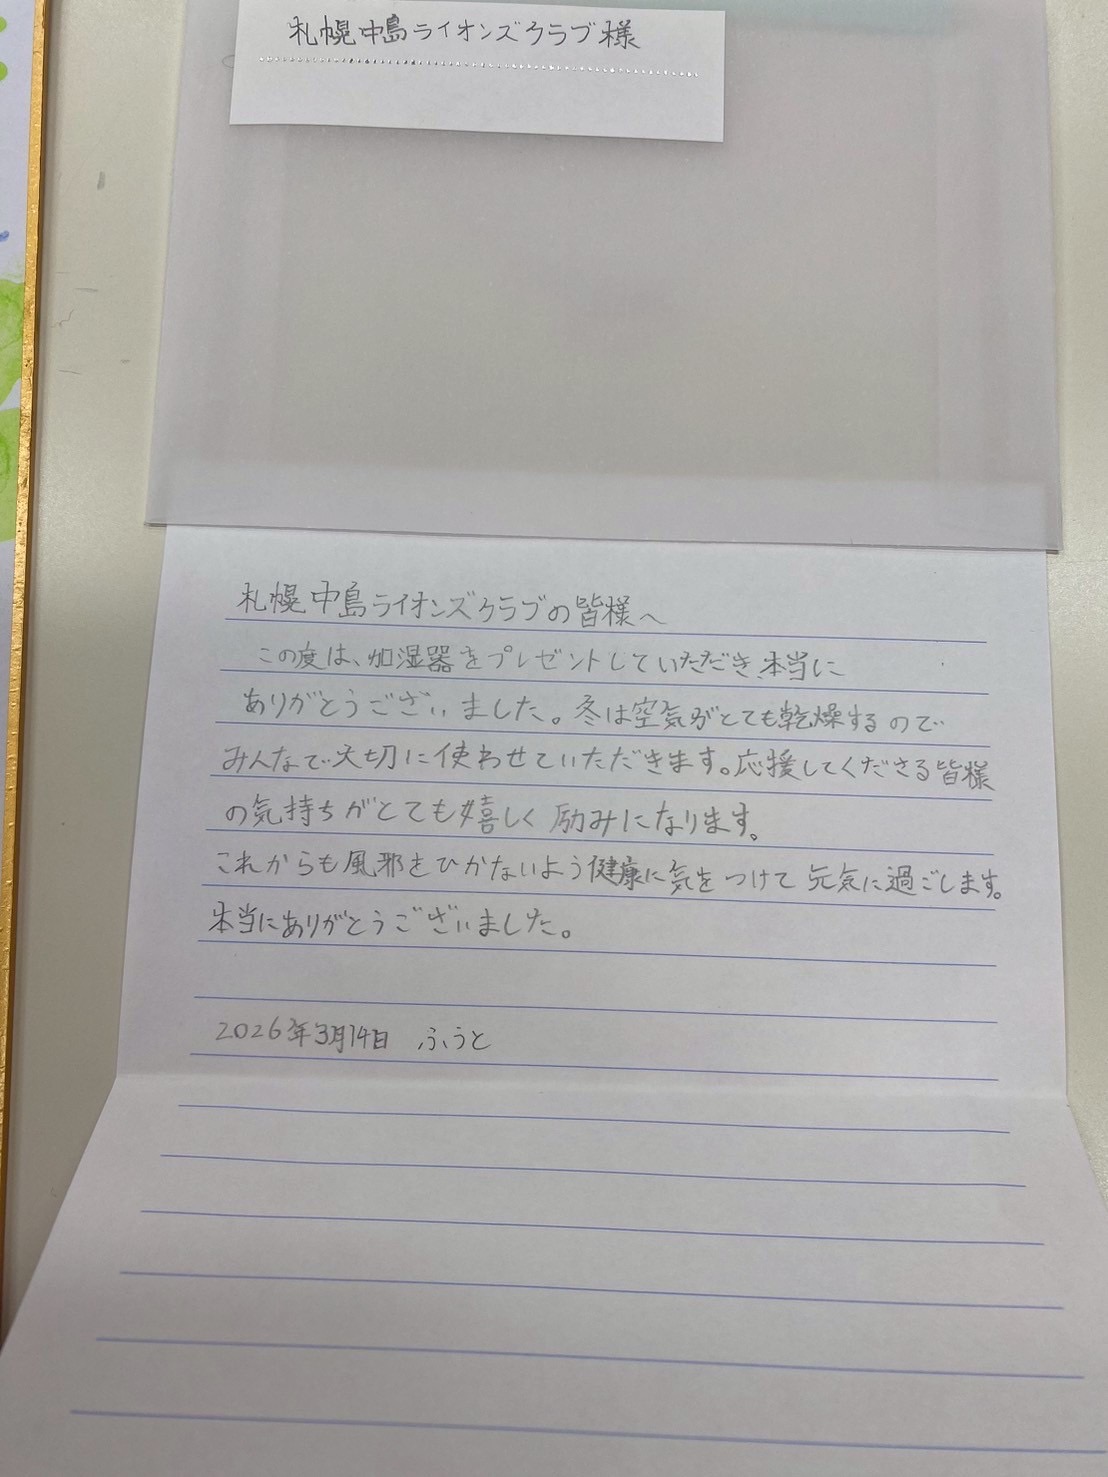 札幌中島ライオンズクラブ様
札幌中島ライオンズクラブの皆様へ
この度は、加湿器をプレゼントしていただき、本当に
ありがとうございました。冬は空気がとても乾燥するので
みんなで大切に使わせていただきます。応援してくださる皆様
の気持ちがとても嬉しく励みになります。
これからも風邪をひかないよう健康に気をつけて元気に過ごします。
本当にありがとうございました。
2026年3月14日 ふうと